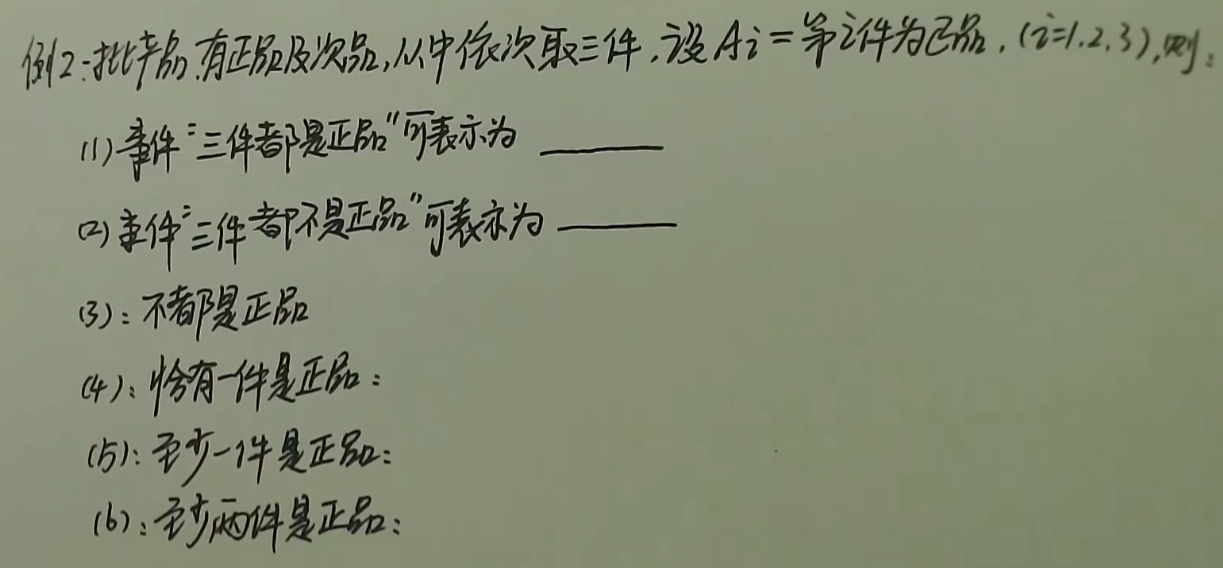 例2:一批产品,有正品及次品,从中依次取三件,设Ai=第i件为正品,(i=1,2,3),则:
(1)事件"三件都是正品"可表示为 ______
(2)事件"三件都不是正品"可表示为 ______
(3):不都是正品
(4):恰有一件是正品:
(5):至少一件是正品:
(6):至少两件是正品: